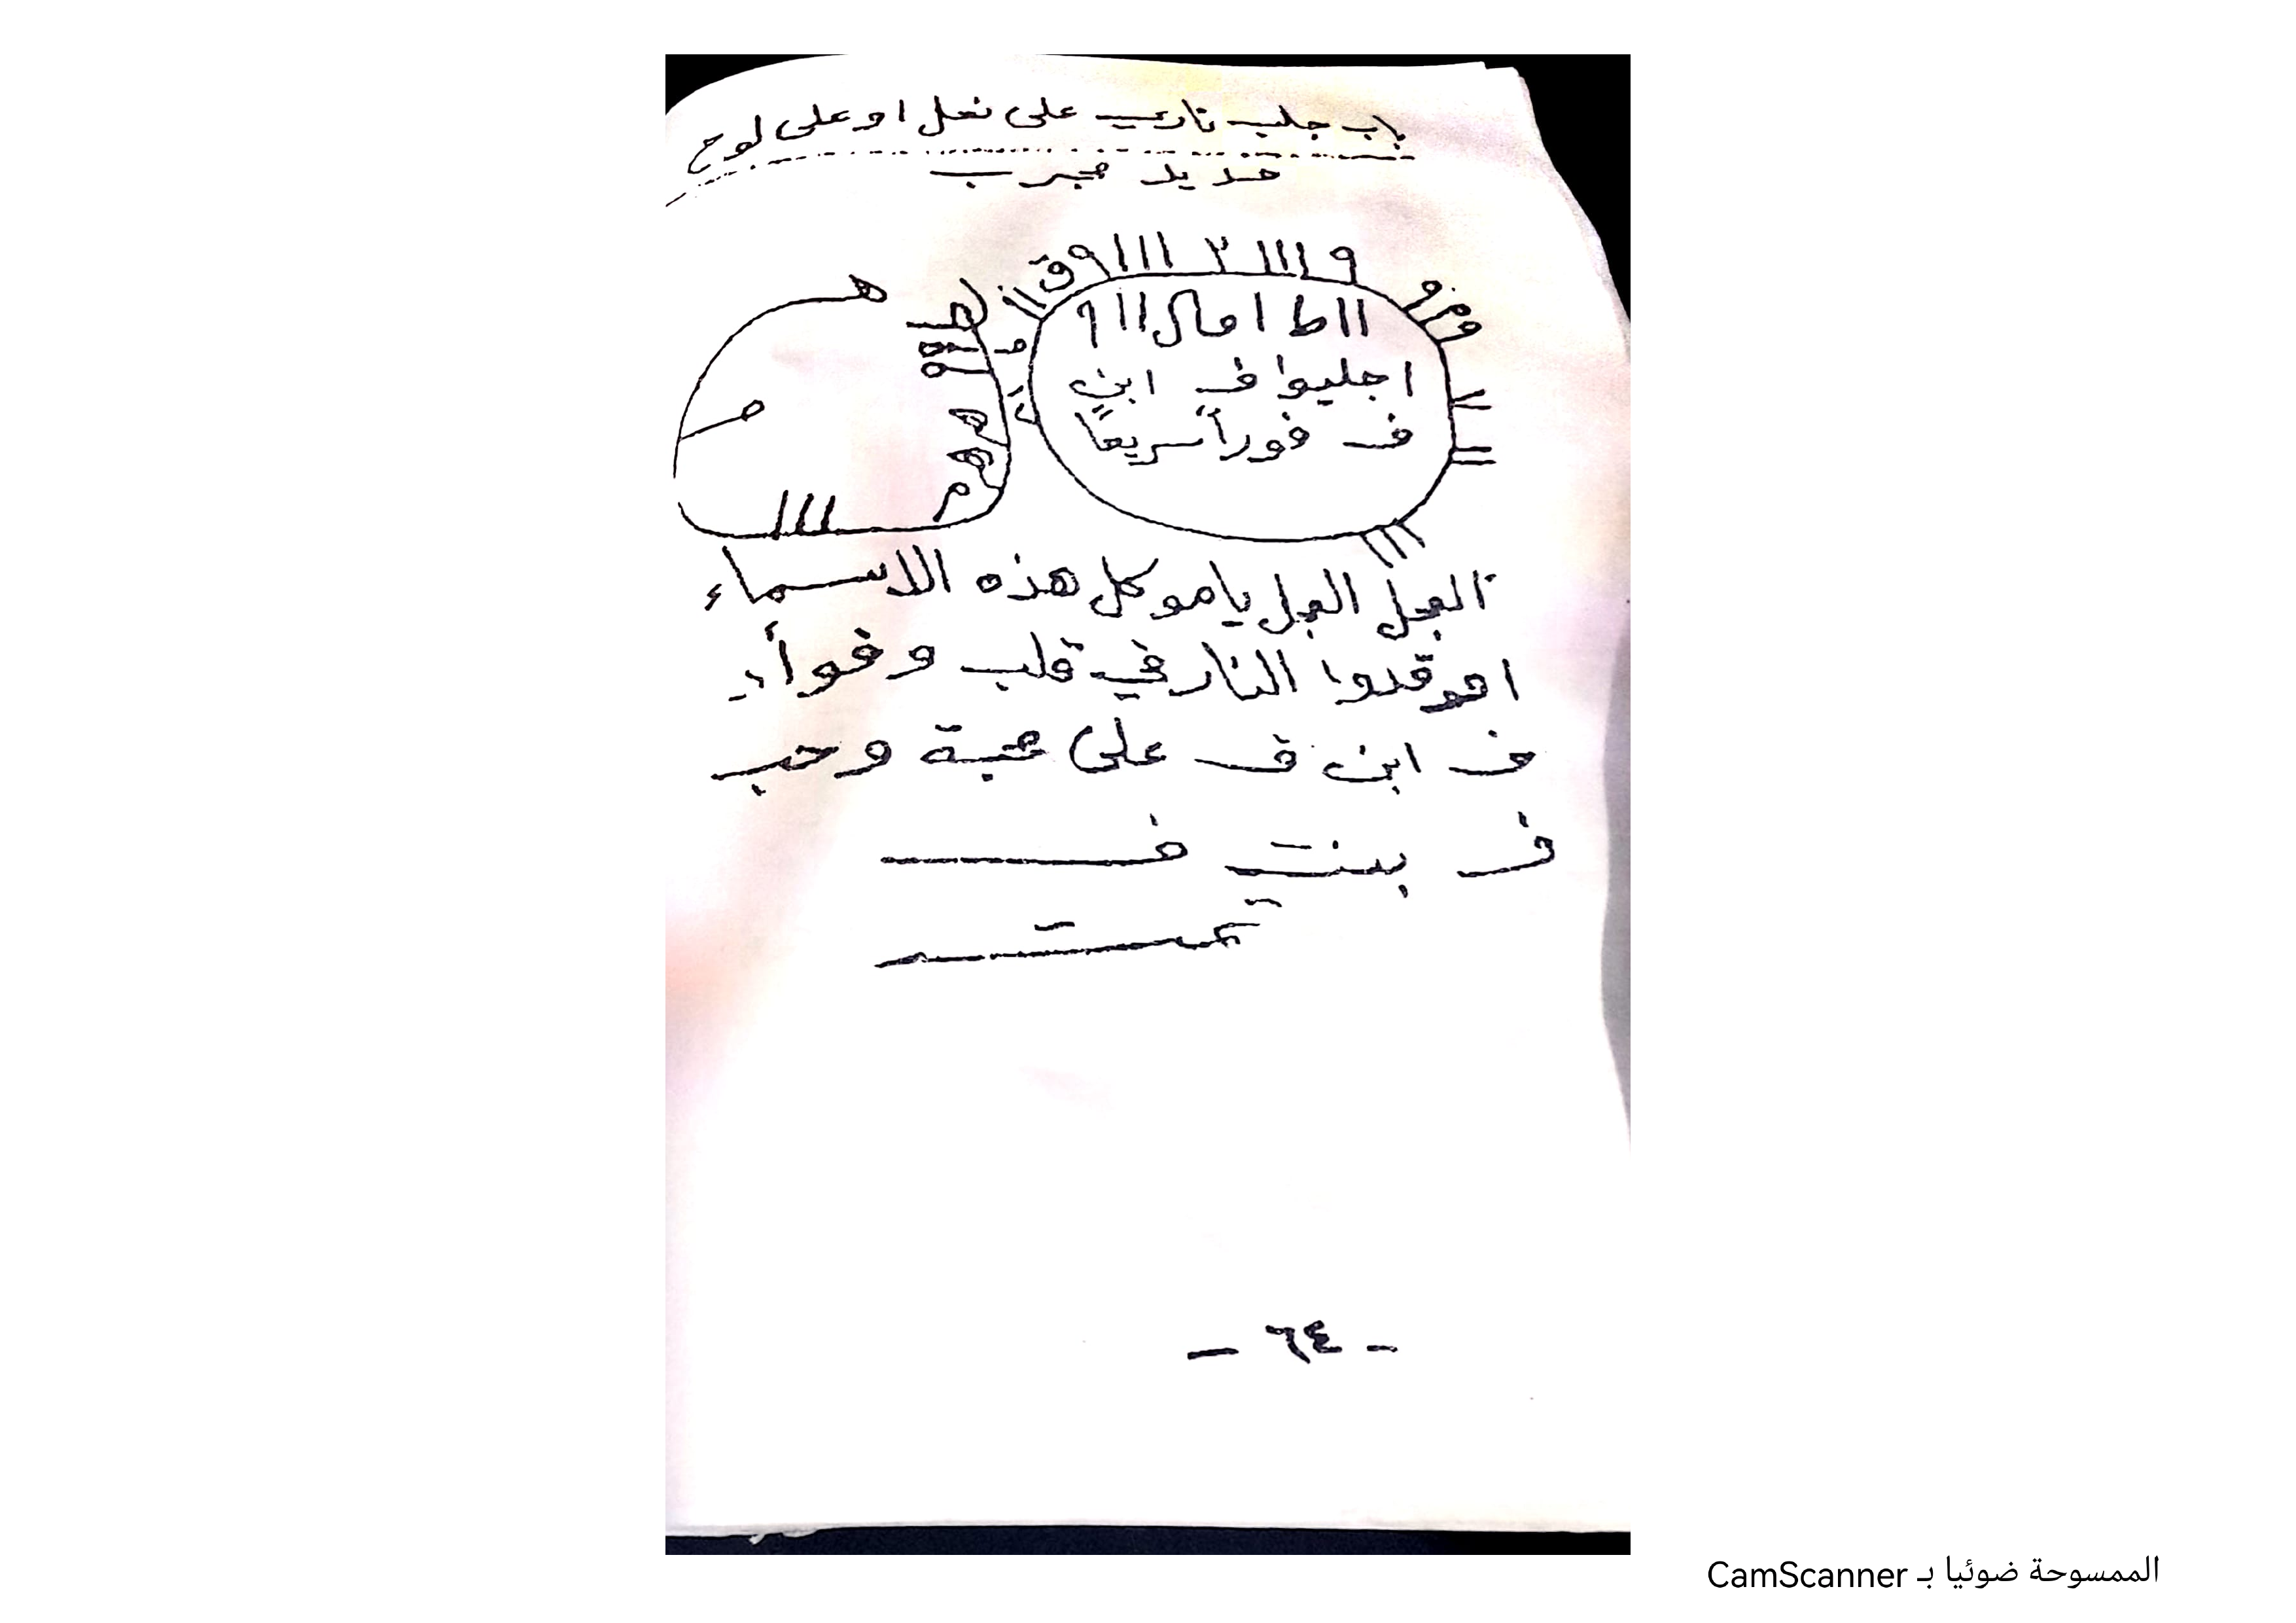 باب جلب ناري على نعل او على لوح
حديد مجرب
٩ ااا ٢ ااا ٩
ااط ا
اجلبوا ف ابن
ف فوراً سريعاً
ااا
العجل العجل يا موكل هذه الاسماء
اوقدوا النار في قلب وفوأد
ف ابن ف على محبة وحب
ف بنت ف
تمت
- ٦٤ -
الممسوحة ضوئيا بـ CamScanner